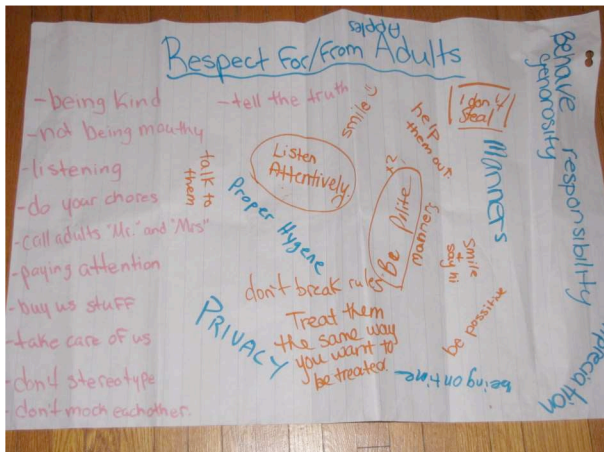 Apples
Respect For/From Adults
-being kind
-not being mouthy
-listening
-do your chores
-call adults "Mr." and "Mrs"
-paying attention
-buy us stuff
-take care of us
-don't stereotype
-don't mock eachother.
-tell the truth
talk to
them
smile
Listen
Attentively
Proper Hygene
help
them out
I don't
Steal
Manners
Be Plite
manners
smile
+
say hi
don't break rules
PRIVACY
Treat them
the same way
you want to
be treated
be possitive
being on time
Behave responsibility
generosity